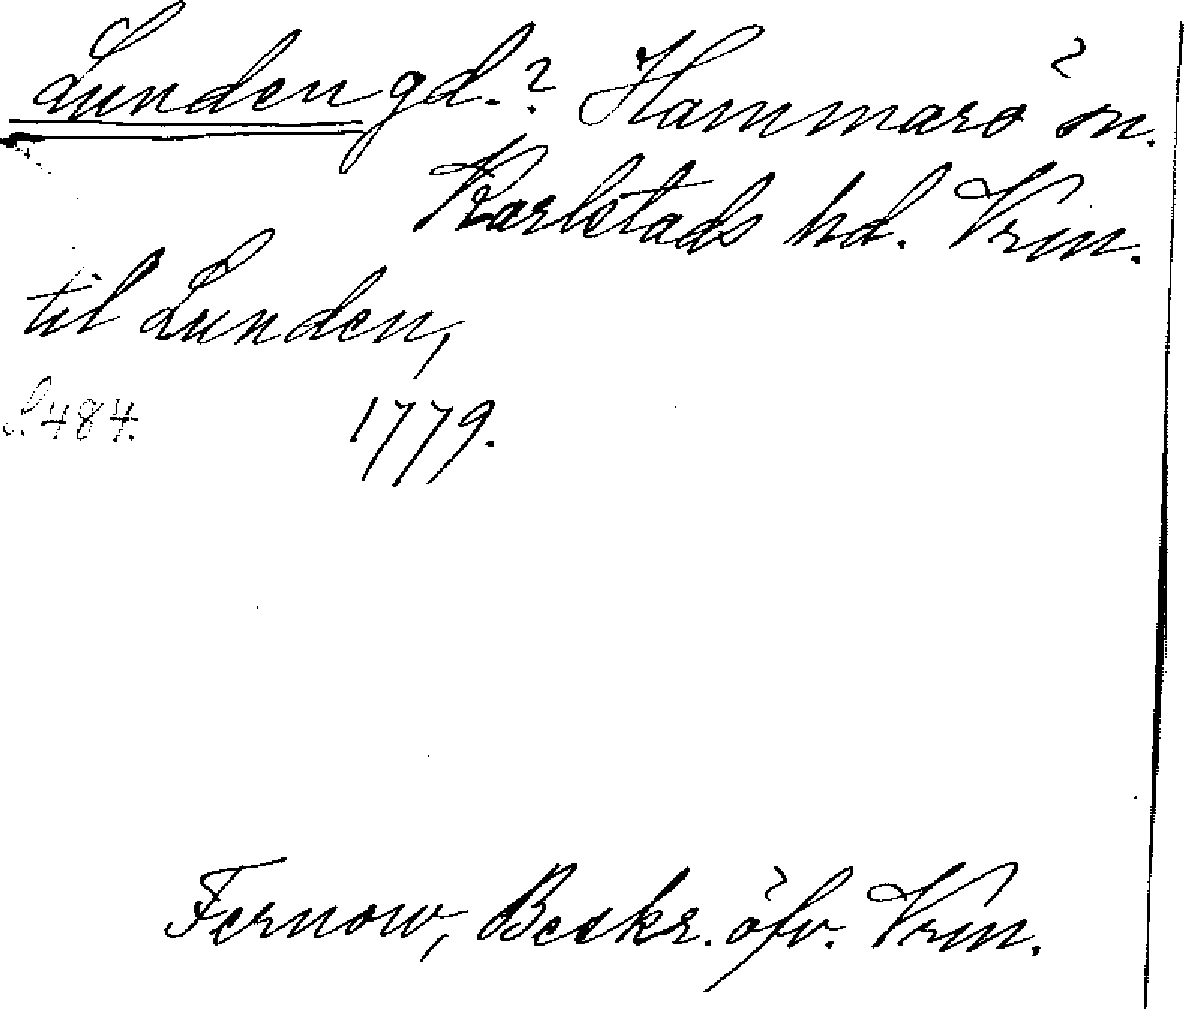 Lunden gd.? Hammarö sn.
Karlstads hd. Vrm.
til Lunden,
S. 484. 1779.
Fernow, Beskr. öfv. Vrm.